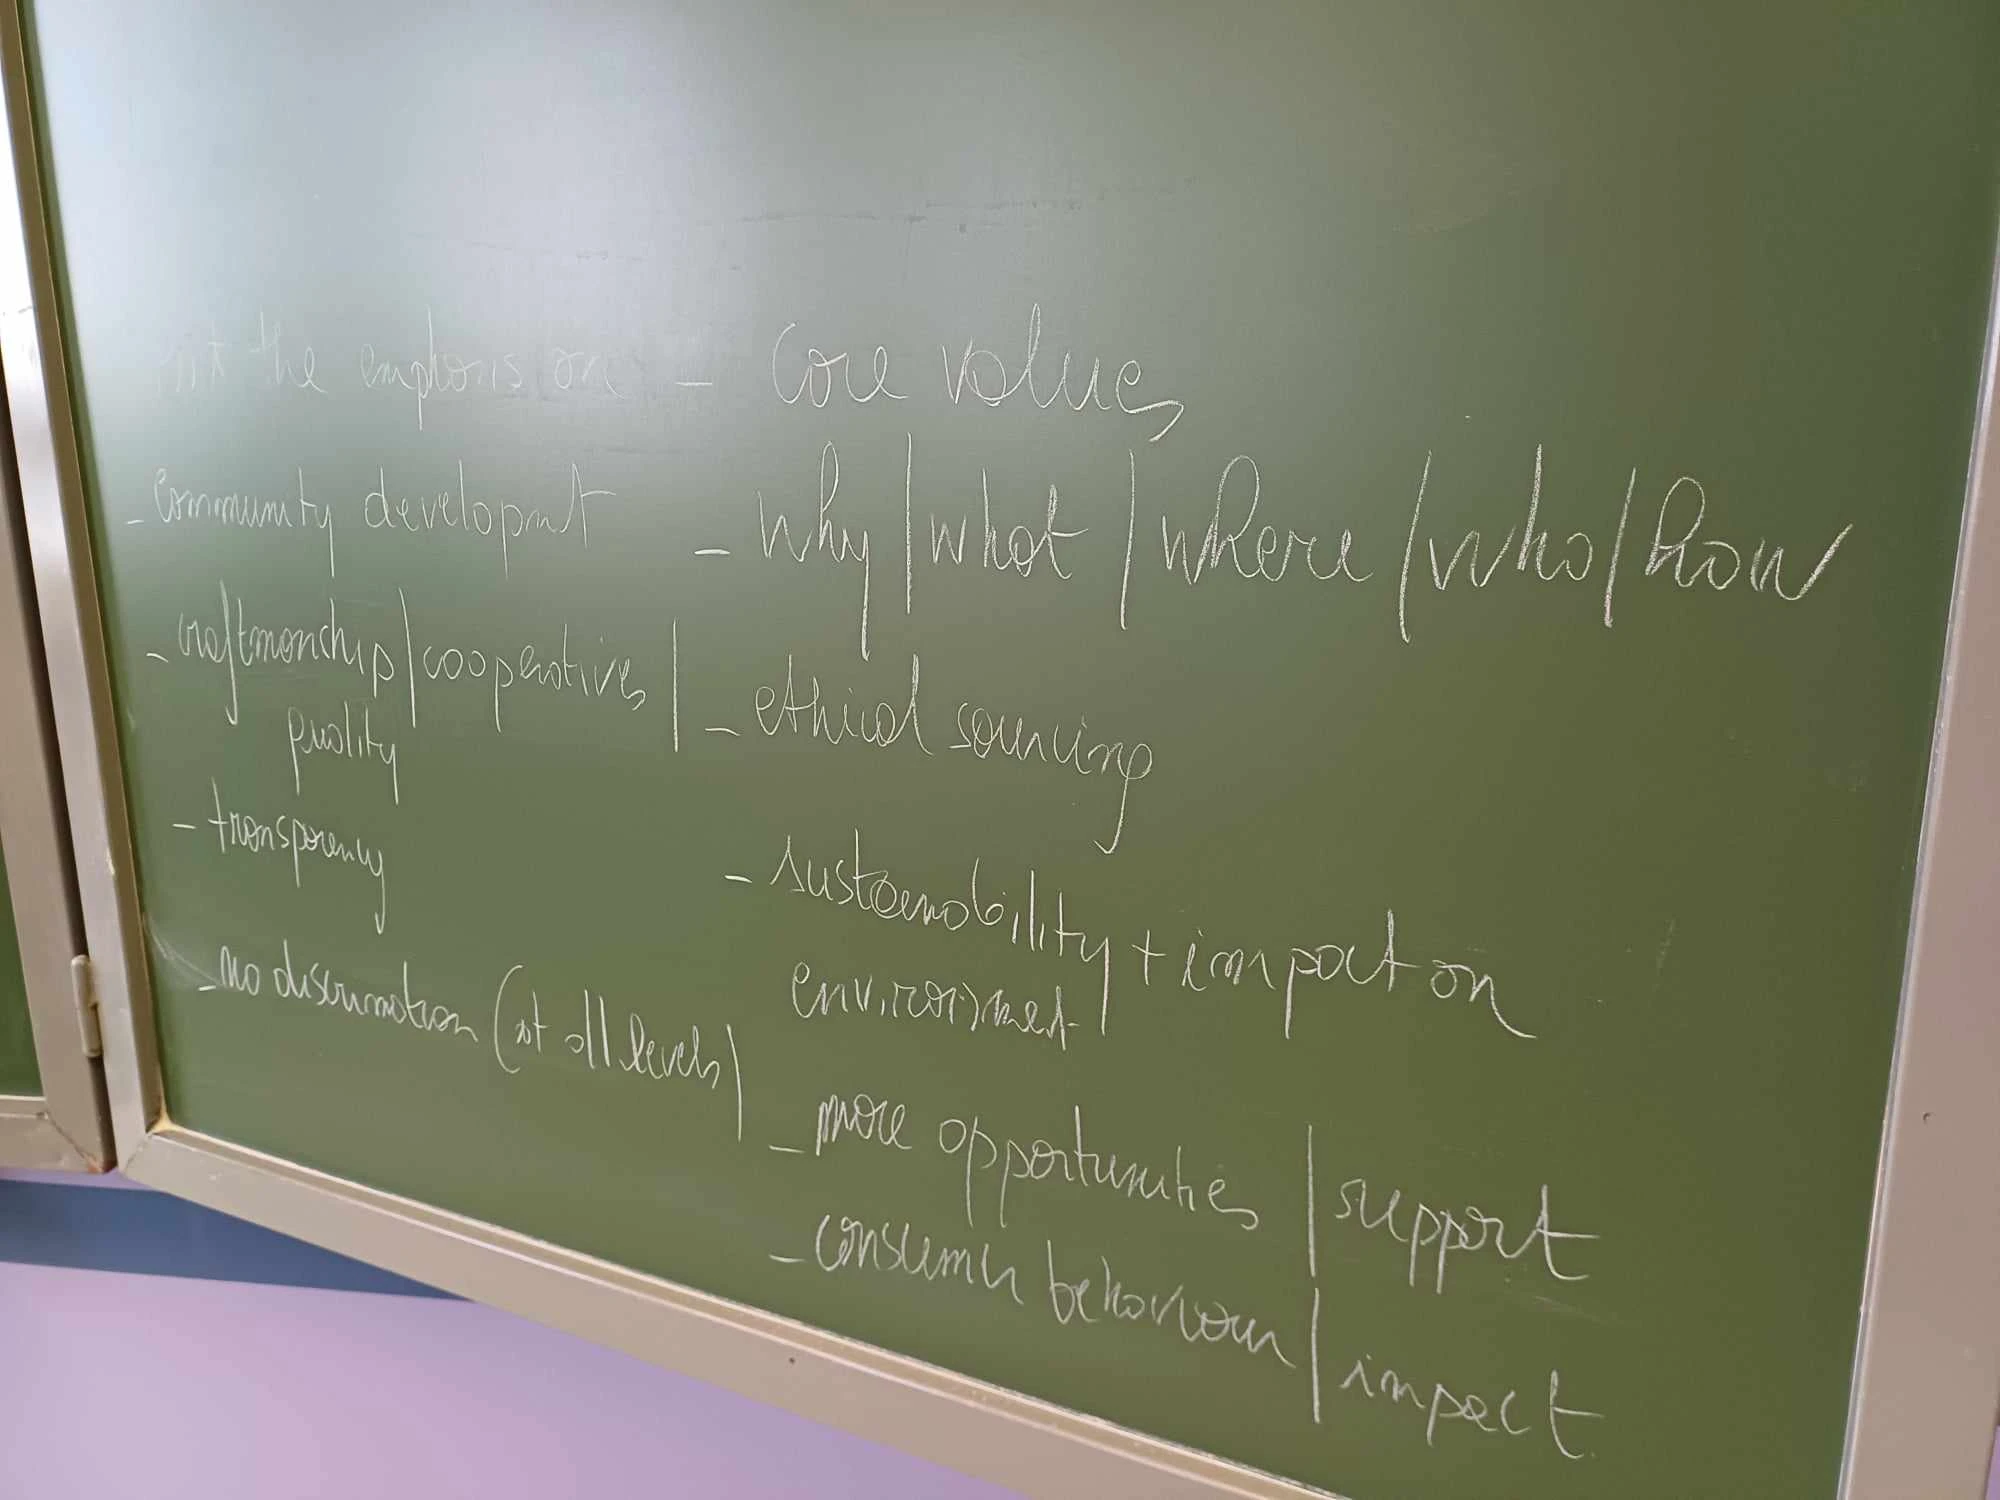 the emphasis on
- community developmt
- craftmanship | cooperatives |
quality
- transparency
- no discrimation (at all levels)
- Core values
- why | what | where / who / how
- ethical sourcing
- sustainability + impact on
environment
- more opportunities | support
- consumer behaviour | impact